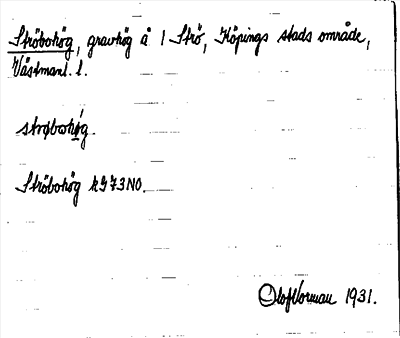 Ströbohög, gravhög å 1 Strö, Köpings stads område,
Västmanl. l.
strøbohǿg.
Ströbohög k973NO.
Olof Norman 1931.